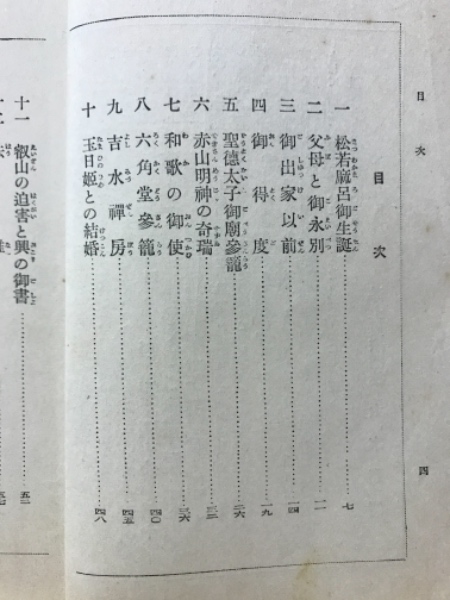 目次
四
目次
一 松若麻呂御生誕 七
二 父母と御永別 一一
三 御出家以前 一四
四 御得度 一九
五 聖德太子御廟參籠 二六
六 赤山明神の奇瑞 三二
七 和歌の御使 三六
八 六角堂參籠 四〇
九 吉水禪房 四五
十 玉日姬との結婚 四八
十一 叡山の迫害と興の御書 五二